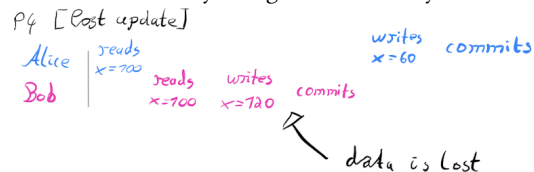 P4 [lost update]
Alice reads x=100 writes x=60 commits
Bob reads x=100 writes x=120 commits
data is lost